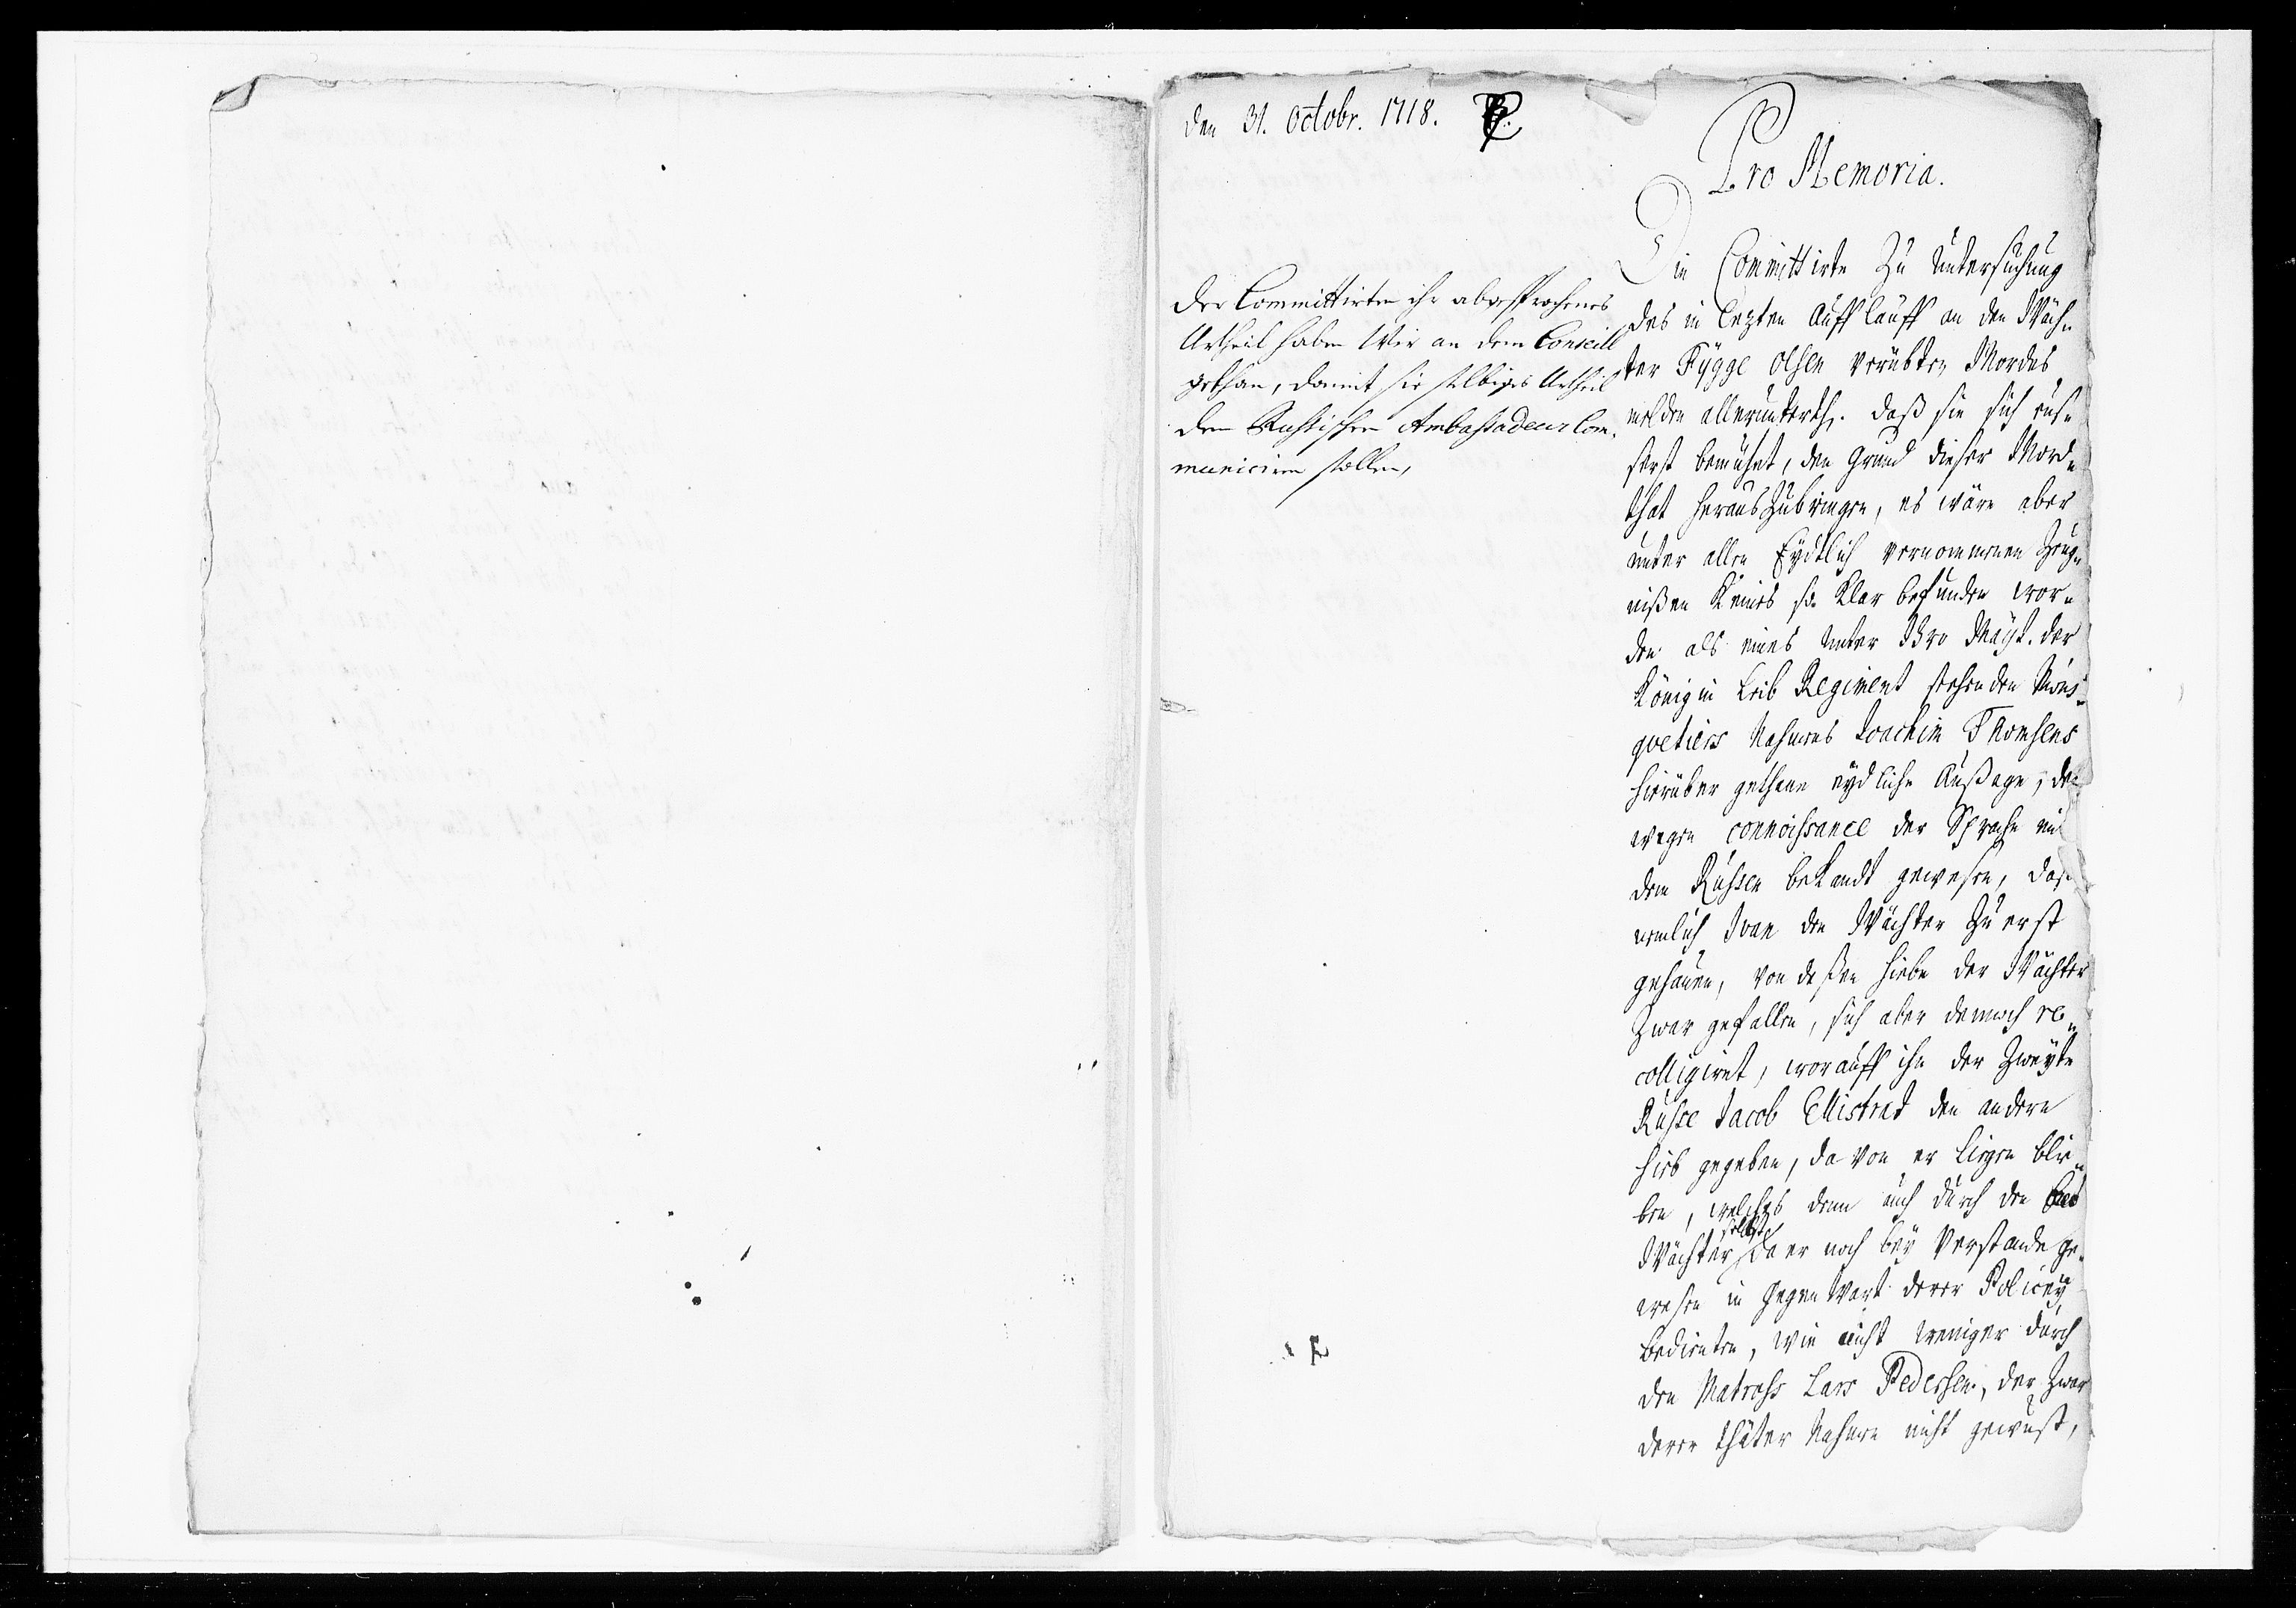 den 31. Octobr. 1718.
Der Committirten ihr abgesprochenes
Urtheil haben Wir an dem Conseill
gethan, damit sie selbiges Urtheil
dem Russischen Ambassadeur Com¬
municiren sollen,
Pro Memoria.
Die Committirte Zu Untersuchung
des in lezten Aufflauff an den Wäch¬
ter Tygge Olsen verübten Mordes
melden allerunterth. daß sie sich eus¬
serst bemühet, den Grund dieser Mord¬
that herauszubringen, es wäre aber
unter allen Eydtlich vernommenen Zeug¬
nißen Keines so Klar befunden wor¬
den als eines unter Ihro Mayt. der
Königin Leib Regiment stehenden Mus¬
qvetiers Nahmens Joachim Thomsens
hierüber gethane eydliche Außage, der
wegen connoissance der Sprache mit
dem Russen bekandt gewesen, daß
nemlich Ivan den Wächter Zu erst
gehauen, von deßen Hiebe der Wächter
Zwar gefallen, sich aber dennoch re¬
colligiret, worauff ihn der Zweyte
Russe Jacob Ellistrat den andern
hieb gegeben, da von er liegen blie¬
ben, welches denn auch durch den
Wächter selbst da er noch bey Verstande ge¬
wesen in Gegenwart derer Policey
bedienten, wie nicht weniger durch
den Matrohs Lars Pedersen, der Zwar
derer thäter Nahmen nicht gewust,